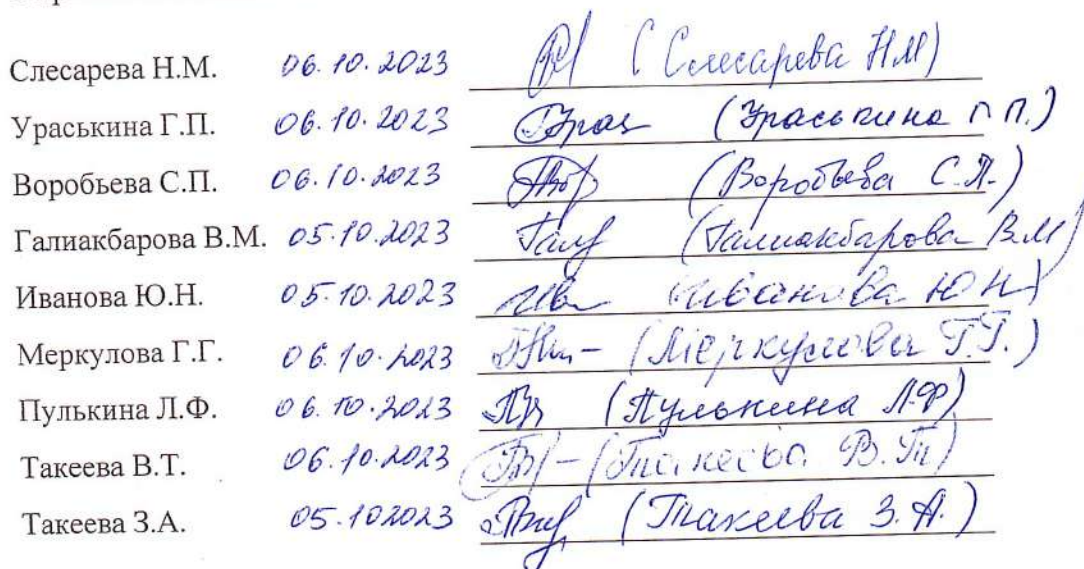 Слесарева Н.М. 06.10.2023 (Слесарева НМ)
Ураськина Г.П. 06.10.2023 (Ураськина Г.П.)
Воробьева С.П. 06.10.2023 (Воробьева С.П.)
Галиакбарова В.М. 05.10.2023 (Галиакбарова В.М)
Иванова Ю.Н. 05.10.2023 Иванова Ю Н)
Меркулова Г.Г. 06.10.2023 (Меркулова Г.Г.)
Пулькина Л.Ф. 06.10.2023 (Пулькина Л.Ф)
Такеева В.Т. 06.10.2023 (Такеева В.Т)
Такеева З.А. 05.102023 (Такеева З.А.)